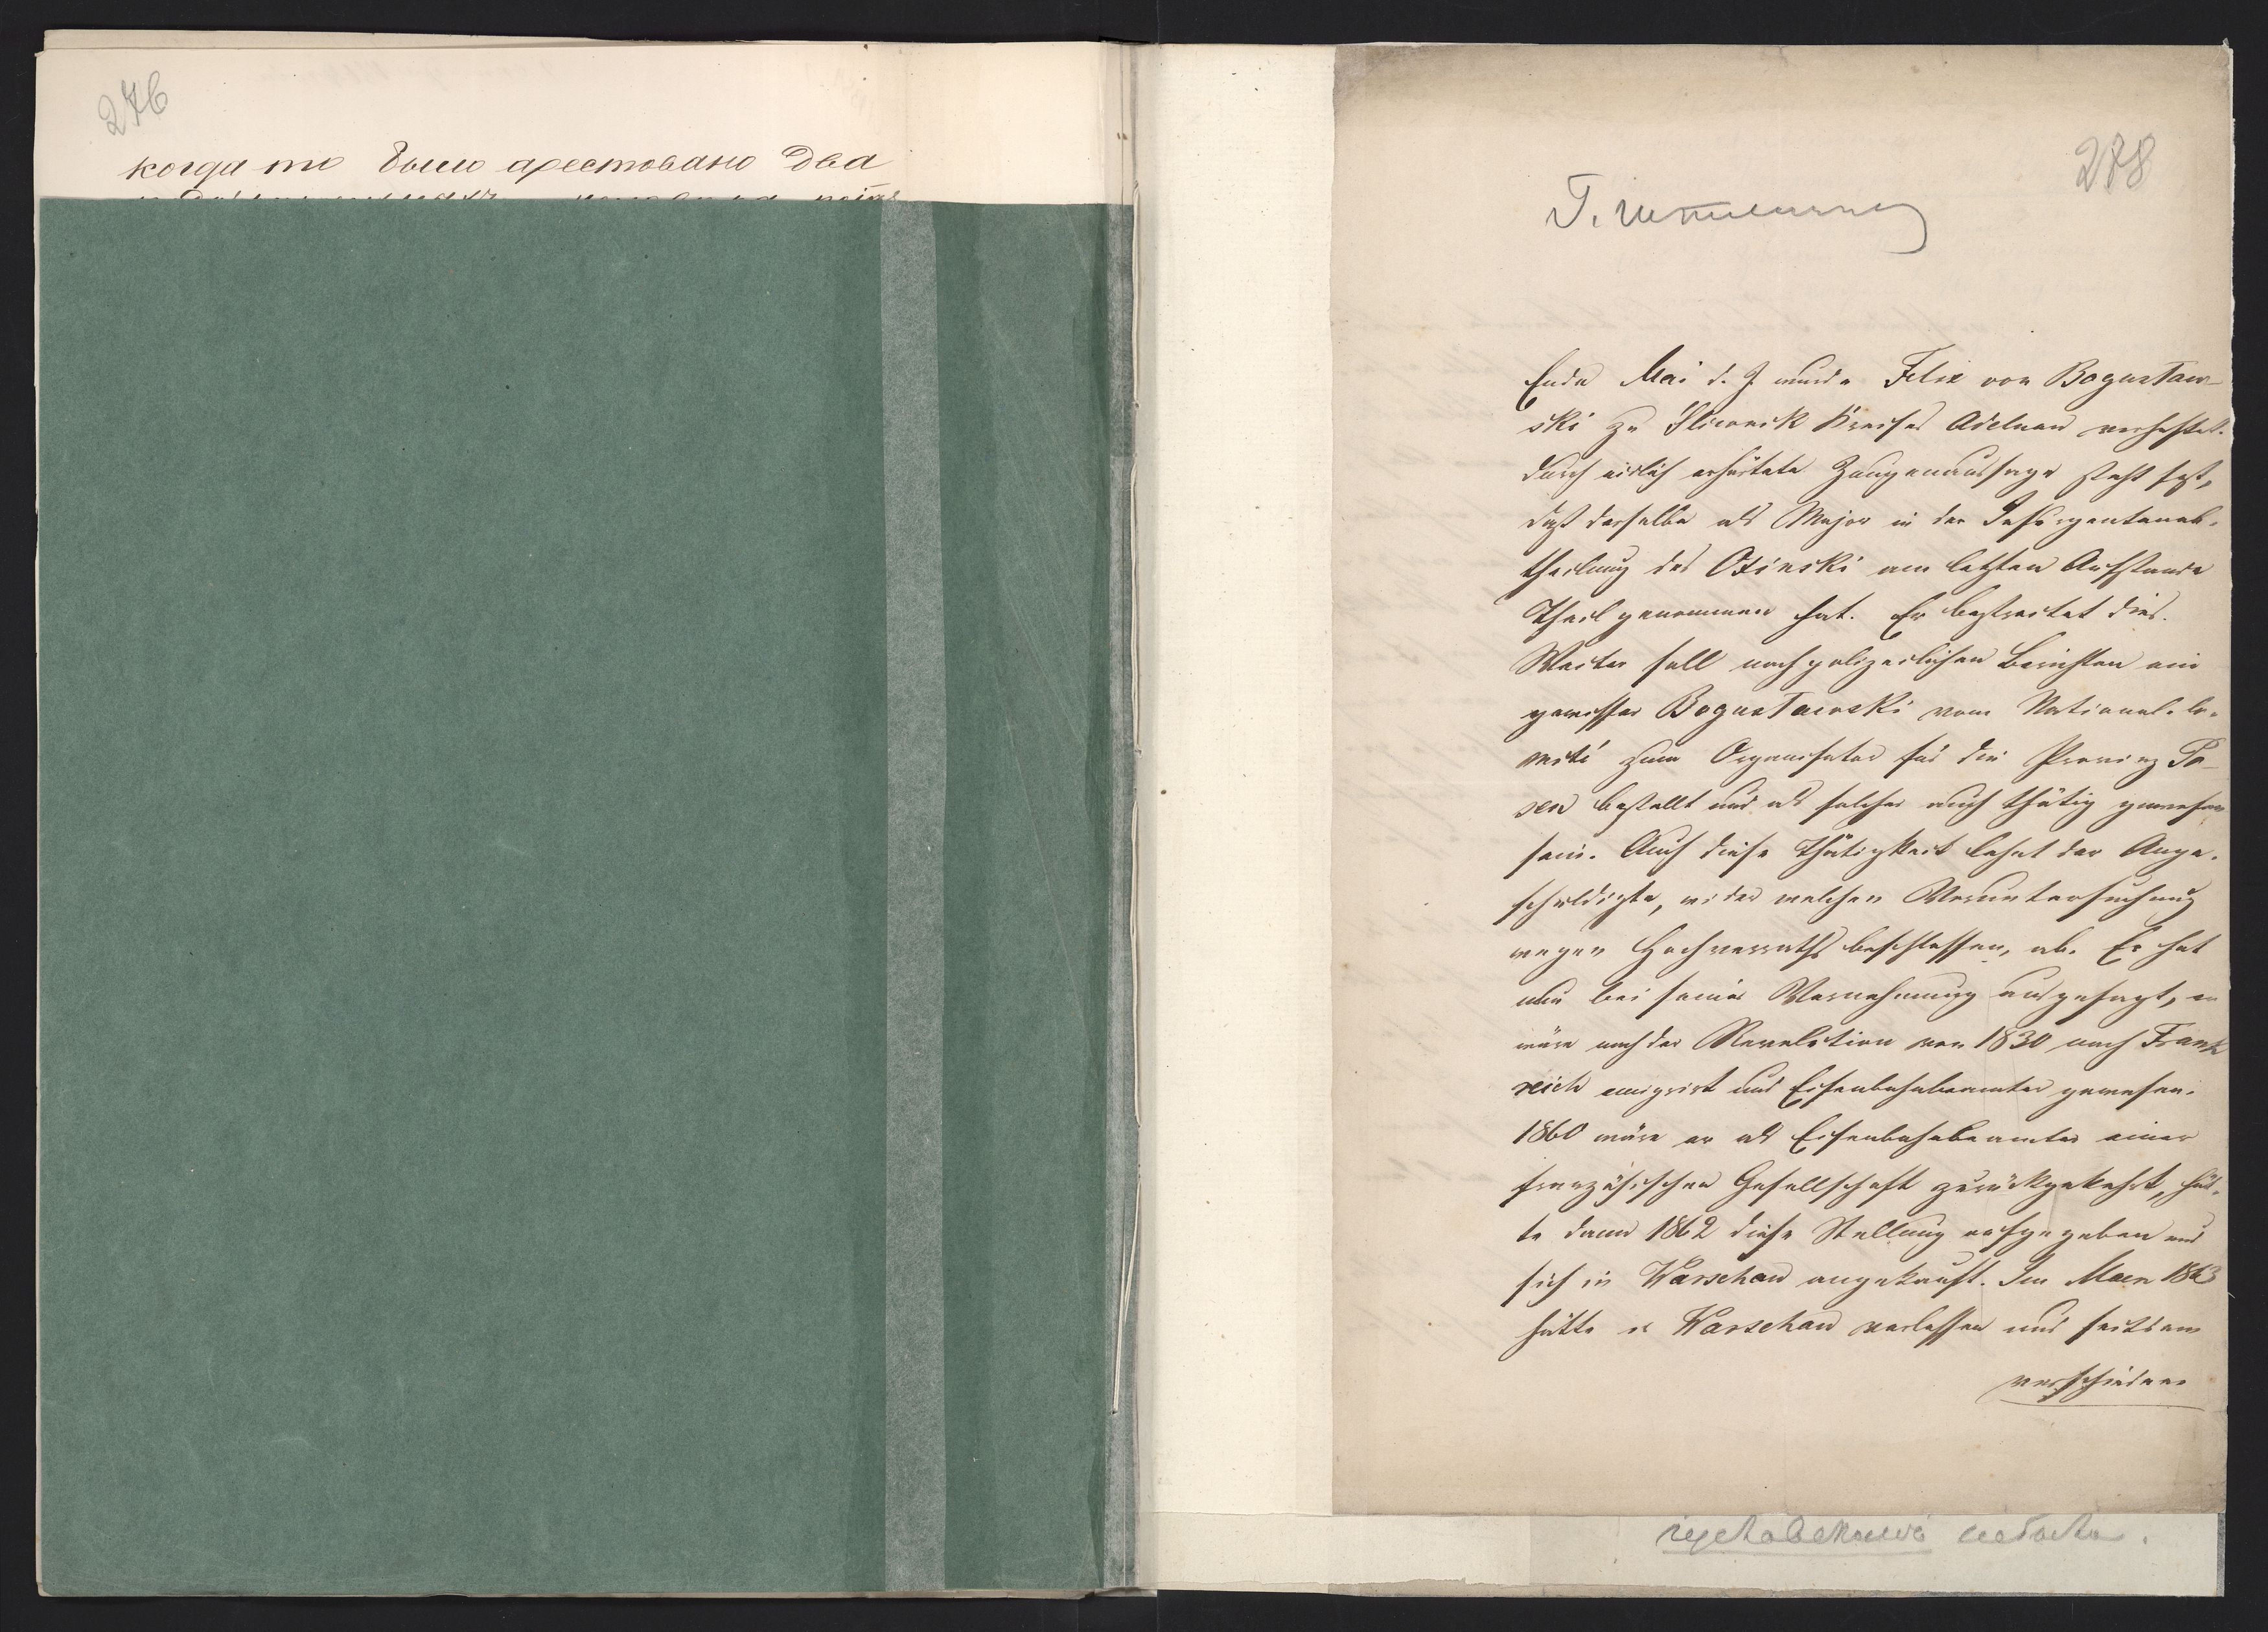 276
когда то было арестовано два
278
Ende Mai d. J. wurde Felix von Bogusław-
ski zu Śliwnik Kreises Adelnau verhaftet.
Durch eidlich erhärtete Zeugenaussage steht fest,
daß derselbe als Major in der Insurgentenab-
theilung des Oxinski am letzten Aufstande
Theil genommen hat. Er bestreitet dies.
Weiter soll nach polizeilichen Berichten ein
gewisser Bogusławski vom National-Co-
mité zum Organisator für die Provinz Po-
sen bestellt und als solcher auch thätig gewesen
sein. Auch diese Thätigkeit lehnt der Ange-
schuldigte, wider welchen Voruntersuchung
wegen Hochverraths beschlossen, ab. Er hat
nun bei seiner Vernehmung ausgesagt, er
wäre nach der Revolution von 1830 nach Frank
reich emigrirt und Eisenbahnbeamter gewesen.
1860 wäre er als Eisenbahnbeamter einer
französischen Gesellschaft zurückgekehrt, hät-
te dann 1862 diese Stellung aufgegeben und
sich in Warschau angekauft. Im 1863
hätte er Warschau verlassen und seitdem
verschiedene